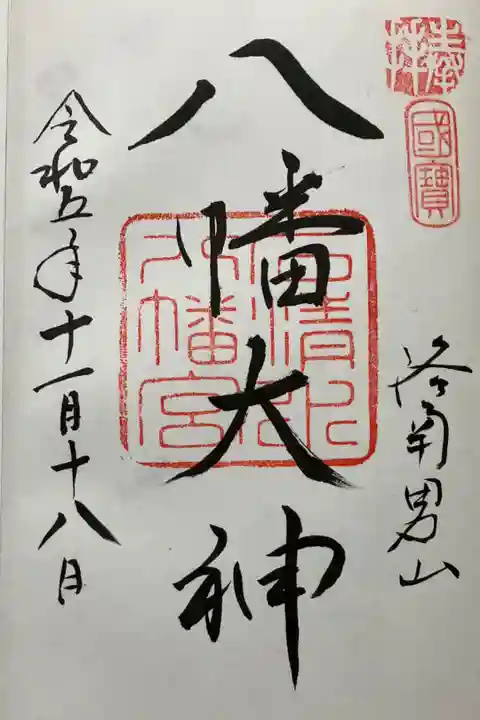 奉拝
國寶
洛南男山
八幡大神
石清水
八幡宮
令和五年十一月十八日